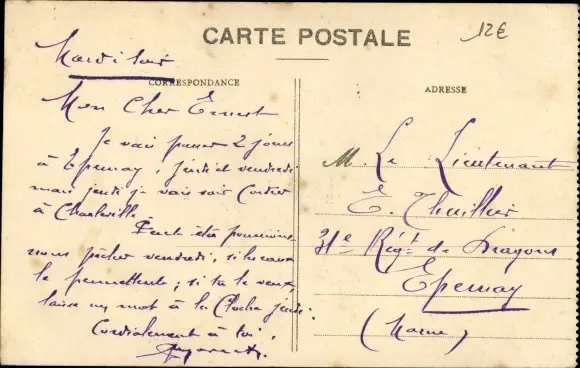 12€
CARTE POSTALE
Mardi soir
CORRESPONDANCE
ADRESSE
Mon Cher Ernest
Je vais passer 2 jours
à Epernay, jeudi et vendredi
mais jeudi je vais voir
à Charleville
Peut être pourrions
nous pêcher vendredi, si les eaux
le permettent; si tu le veux,
laisse un mot à la Cloche jeudi.
Cordialement à toi,
M. Le Lieutenant
E. Thuillier
31e Régt. de Dragons
Epernay
(Marne)